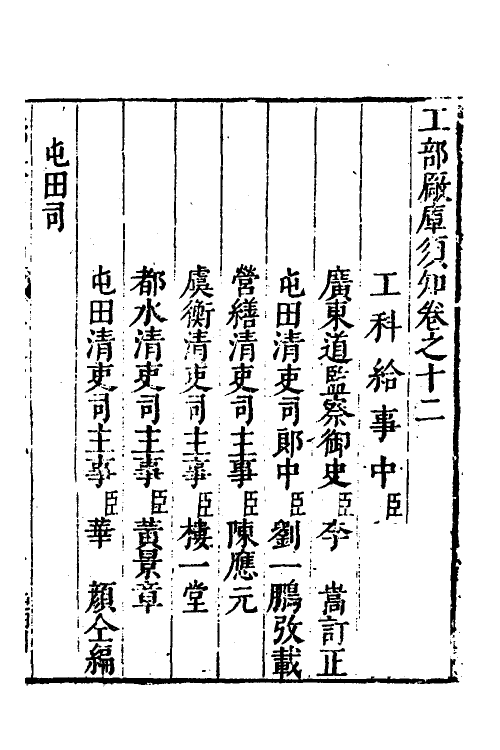 工部厰庫須知卷之十二
工科給事中臣
廣東道監察御史臣李　嵩訂正
屯田清吏司郎中臣劉一鵬攷載
營繕清吏司主事臣陳應元
虞衡清吏司主事臣樓一堂
都水清吏司主事臣黃景章
屯田清吏司主事臣華　顏仝編
屯田司